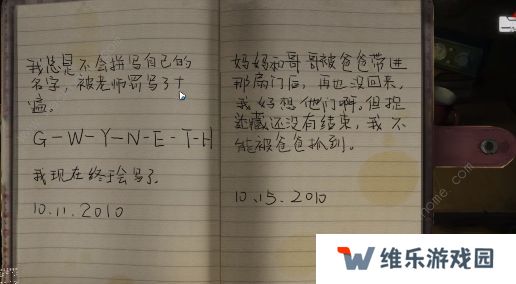 我总是不会拼写自己的
名字，被老师罚写了十
遍。
G-W-Y-N-E-T-H
我现在终于会写了。
10.11.2010
妈妈和哥哥被爸爸带进
那扇门后，再也没回来，
我好想他们啊。但捉
迷藏还没有结束，我不
能被爸爸抓到。
10.15.2010
维乐游戏园